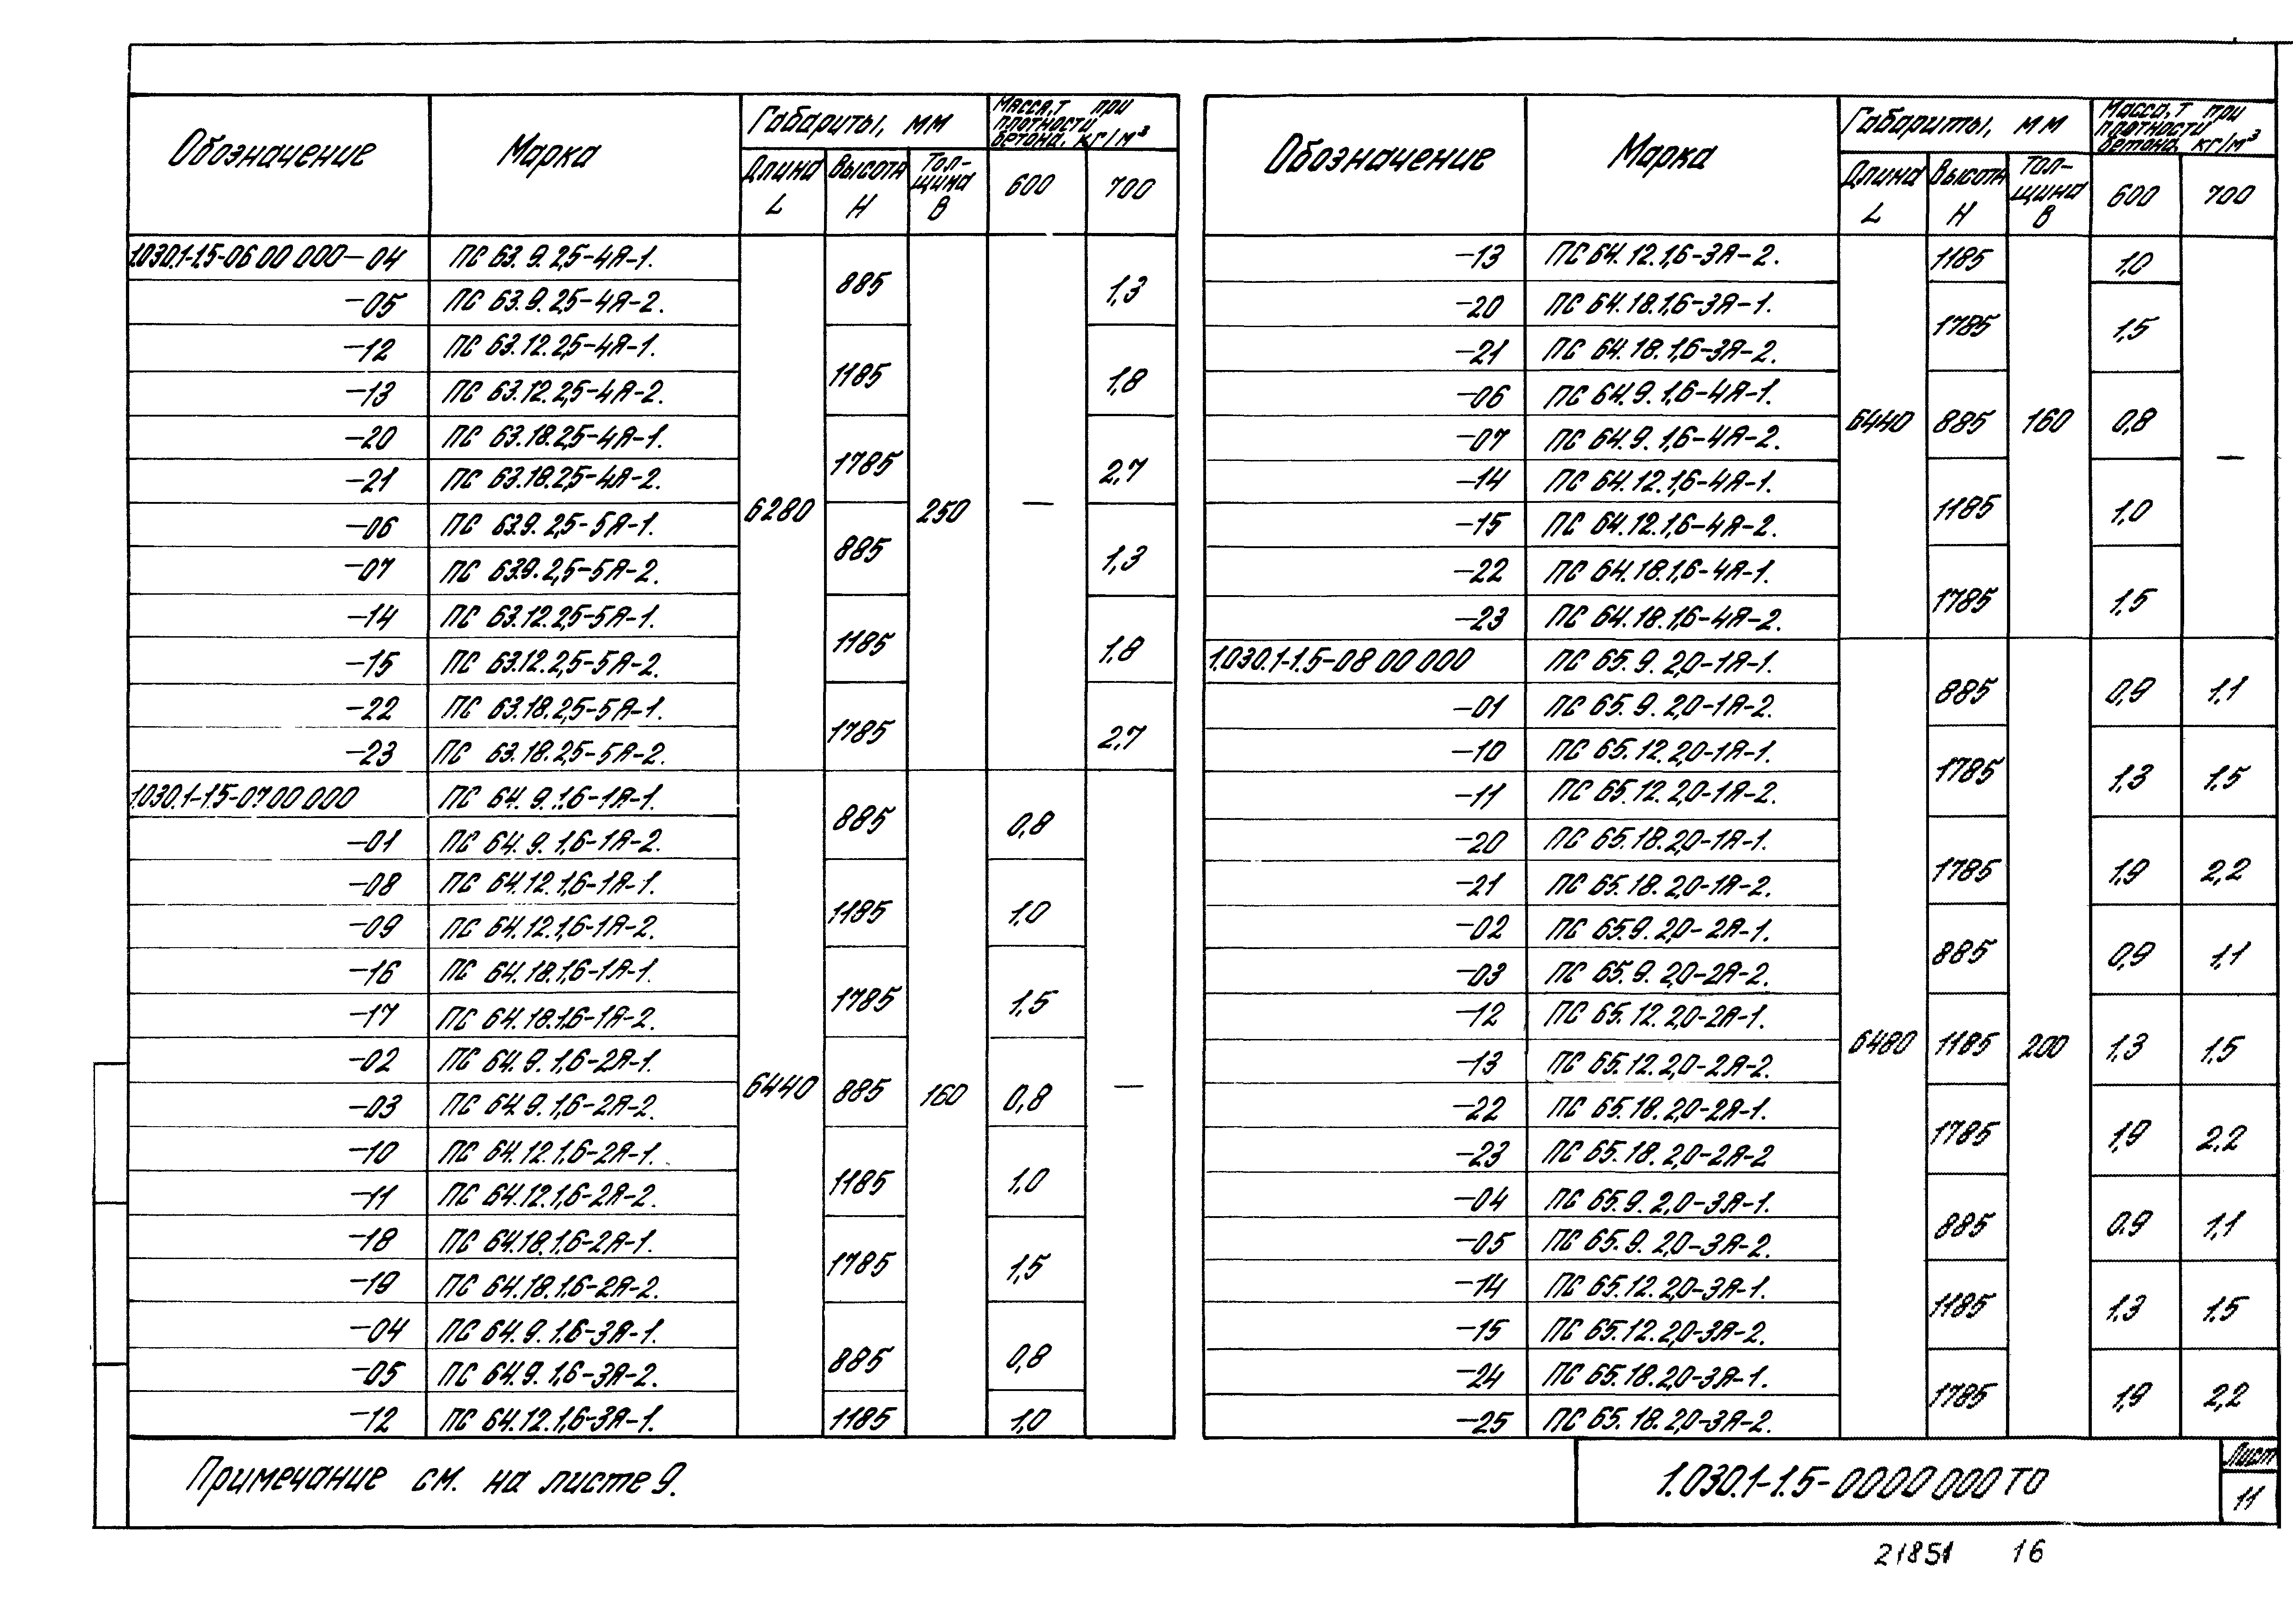 Обозначение Марка Габариты, мм Масса, т при плотности бетона, кг/м³
Длина L Высота H Толщина B 600 700
1.030.1-1.5-06 00 000-04 ПС 63.9.2,5-4Я-1. 6280 885 250 — 1,3
-05 ПС 63.9.2,5-4Я-2.
-12 ПС 63.12.2,5-4Я-1. 1185 1,8
-13 ПС 63.12.2,5-4Я-2.
-20 ПС 63.18.2,5-4Я-1. 1785 2,7
-21 ПС 63.18.2,5-4Я-2.
-06 ПС 63.9.2,5-5Я-1. 885 1,3
-07 ПС 63.9.2,5-5Я-2.
-14 ПС 63.12.2,5-5Я-1. 1185 1,8
-15 ПС 63.12.2,5-5Я-2.
-22 ПС 63.18.2,5-5Я-1. 1785 2,7
-23 ПС 63.18.2,5-5Я-2.
1.030.1-1.5-07 00 000 ПС 64.9.1,6-1Я-1. 6440 885 160 0,8 —
-01 ПС 64.9.1,6-1Я-2.
-08 ПС 64.12.1,6-1Я-1. 1185 1,0
-09 ПС 64.12.1,6-1Я-2.
-16 ПС 64.18.1,6-1Я-1. 1785 1,5
-17 ПС 64.18.1,6-1Я-2.
-02 ПС 64.9.1,6-2Я-1. 885 0,8
-03 ПС 64.9.1,6-2Я-2.
-10 ПС 64.12.1,6-2Я-1. 1185 1,0
-11 ПС 64.12.1,6-2Я-2.
-18 ПС 64.18.1,6-2Я-1. 1785 1,5
-19 ПС 64.18.1,6-2Я-2.
-04 ПС 64.9.1,6-3Я-1. 885 0,8
-05 ПС 64.9.1,6-3Я-2.
-12 ПС 64.12.1,6-3Я-1. 1185 1,0
Обозначение Марка Габариты, мм Масса, т при плотности бетона, кг/м³
Длина L Высота H Толщина B 600 700
-13 ПС 64.12.1,6-3Я-2. 6440 1185 160 1,0 —
-20 ПС 64.18.1,6-3Я-1. 1785 1,5
-21 ПС 64.18.1,6-3Я-2.
-06 ПС 64.9.1,6-4Я-1. 885 0,8
-07 ПС 64.9.1,6-4Я-2.
-14 ПС 64.12.1,6-4Я-1. 1185 1,0
-15 ПС 64.12.1,6-4Я-2.
-22 ПС 64.18.1,6-4Я-1. 1785 1,5
-23 ПС 64.18.1,6-4Я-2.
1.030.1-1.5-08 00 000 ПС 65.9.2,0-1Я-1. 6480 885 200 0,9 1,1
-01 ПС 65.9.2,0-1Я-2.
-10 ПС 65.12.2,0-1Я-1. 1785 1,3 1,5
-11 ПС 65.12.2,0-1Я-2.
-20 ПС 65.18.2,0-1Я-1. 1785 1,9 2,2
-21 ПС 65.18.2,0-1Я-2.
-02 ПС 65.9.2,0-2Я-1. 885 0,9 1,1
-03 ПС 65.9.2,0-2Я-2.
-12 ПС 65.12.2,0-2Я-1. 1185 1,3 1,5
-13 ПС 65.12.2,0-2Я-2.
-22 ПС 65.18.2,0-2Я-1. 1785 1,9 2,2
-23 ПС 65.18.2,0-2Я-2
-04 ПС 65.9.2,0-3Я-1. 885 0,9 1,1
-05 ПС 65.9.2,0-3Я-2.
-14 ПС 65.12.2,0-3Я-1. 1185 1,3 1,5
-15 ПС 65.12.2,0-3Я-2.
-24 ПС 65.18.2,0-3Я-1. 1785 1,9 2,2
-25 ПС 65.18.2,0-3Я-2.
Примечание см. на листе 9.
1.030.1-1.5-0000 000 ТО
Лист
11
21851 16